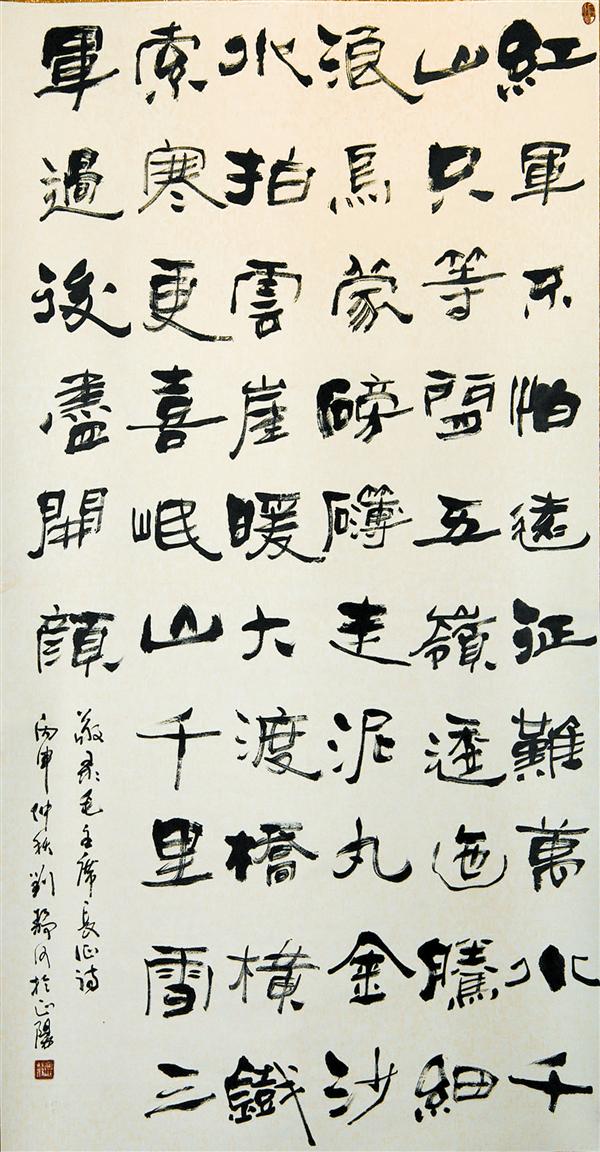 紅軍不怕遠征難萬水千
山只等閒五嶺逶迤騰細
浪烏蒙磅礴走泥丸金沙
水拍雲崖暖大渡橋橫鐵
索寒更喜岷山千里雪三
軍過後盡開顏
敬录毛主席長征诗
丙申仲秋劉静河於正陽